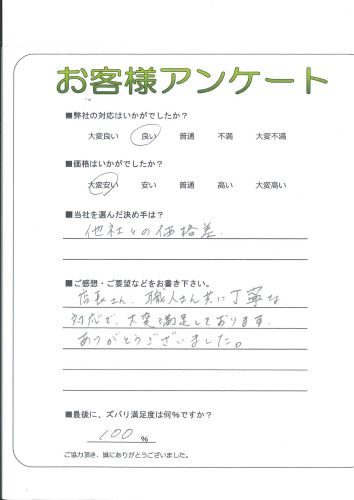 お客様アンケート
■弊社の対応はいかがでしたか？
大変良い 良い 普通 不満 大変不満
■価格はいかがでしたか？
大変安い 安い 普通 高い 大変高い
■当社を選んだ決め手は？
他社との価格差
■ご感想・ご要望などをお書き下さい。
さん、職人さん共に丁寧な
対応で、大変満足しております。
ありがとうございました。
■最後に、ズバリ満足度は何%ですか？
100 %
ご協力頂き、誠にありがとうございました。